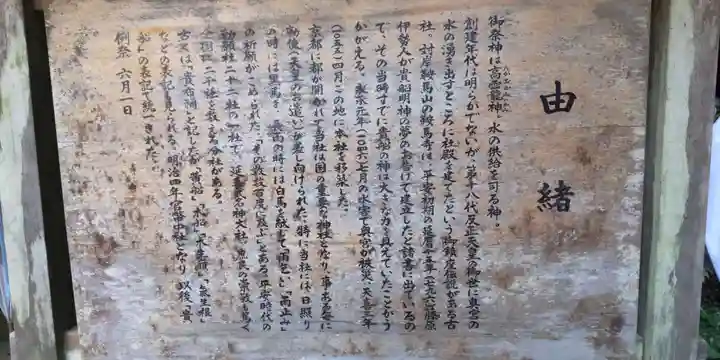 由緒
御祭神は高龗神、水の供給を司る神。
創建年代は明らかでないが、第十八代反正天皇の御世に奥宮の
水の湧き出すところに社殿を建てたという御鎮座伝説がある古
社。対岸鞍馬山の鞍馬寺は、平安初期の延暦十五年(七九六)藤原
伊勢人が貴船明神の夢のお告げで建立したと諸書に出ているの
で、その当時すでに貴船の神は大きな力を具えていたことがう
かがえる。永承元年(一〇四六)七月の水害で奥宮が被災、天喜三年
(一〇五五)四月この地に本社を移築した。
京都に都が開かれて当社は国の重要な神社となり、事あるごに
勅使(天皇のお遣い)が差し向けられた。特に当社には、日照り
の時には黒馬を、長雨の時には白馬を献じて「雨乞い」「雨止み」
の祈願がこめられた。「その数数百度に及ぶ」とある。平安時代の
勅願社二十二社の一つで、延喜式名神大社、庶民の崇敬も篤く
全国に二千社を数える分社がある。
古くは「貴布禰」と記したが「黄船」「木船」「木生嶺」「気生根」
などの表記も見られる。明治四年官幣中社となり、以後「貴
船」の表記で統一された。
例祭 六月一日